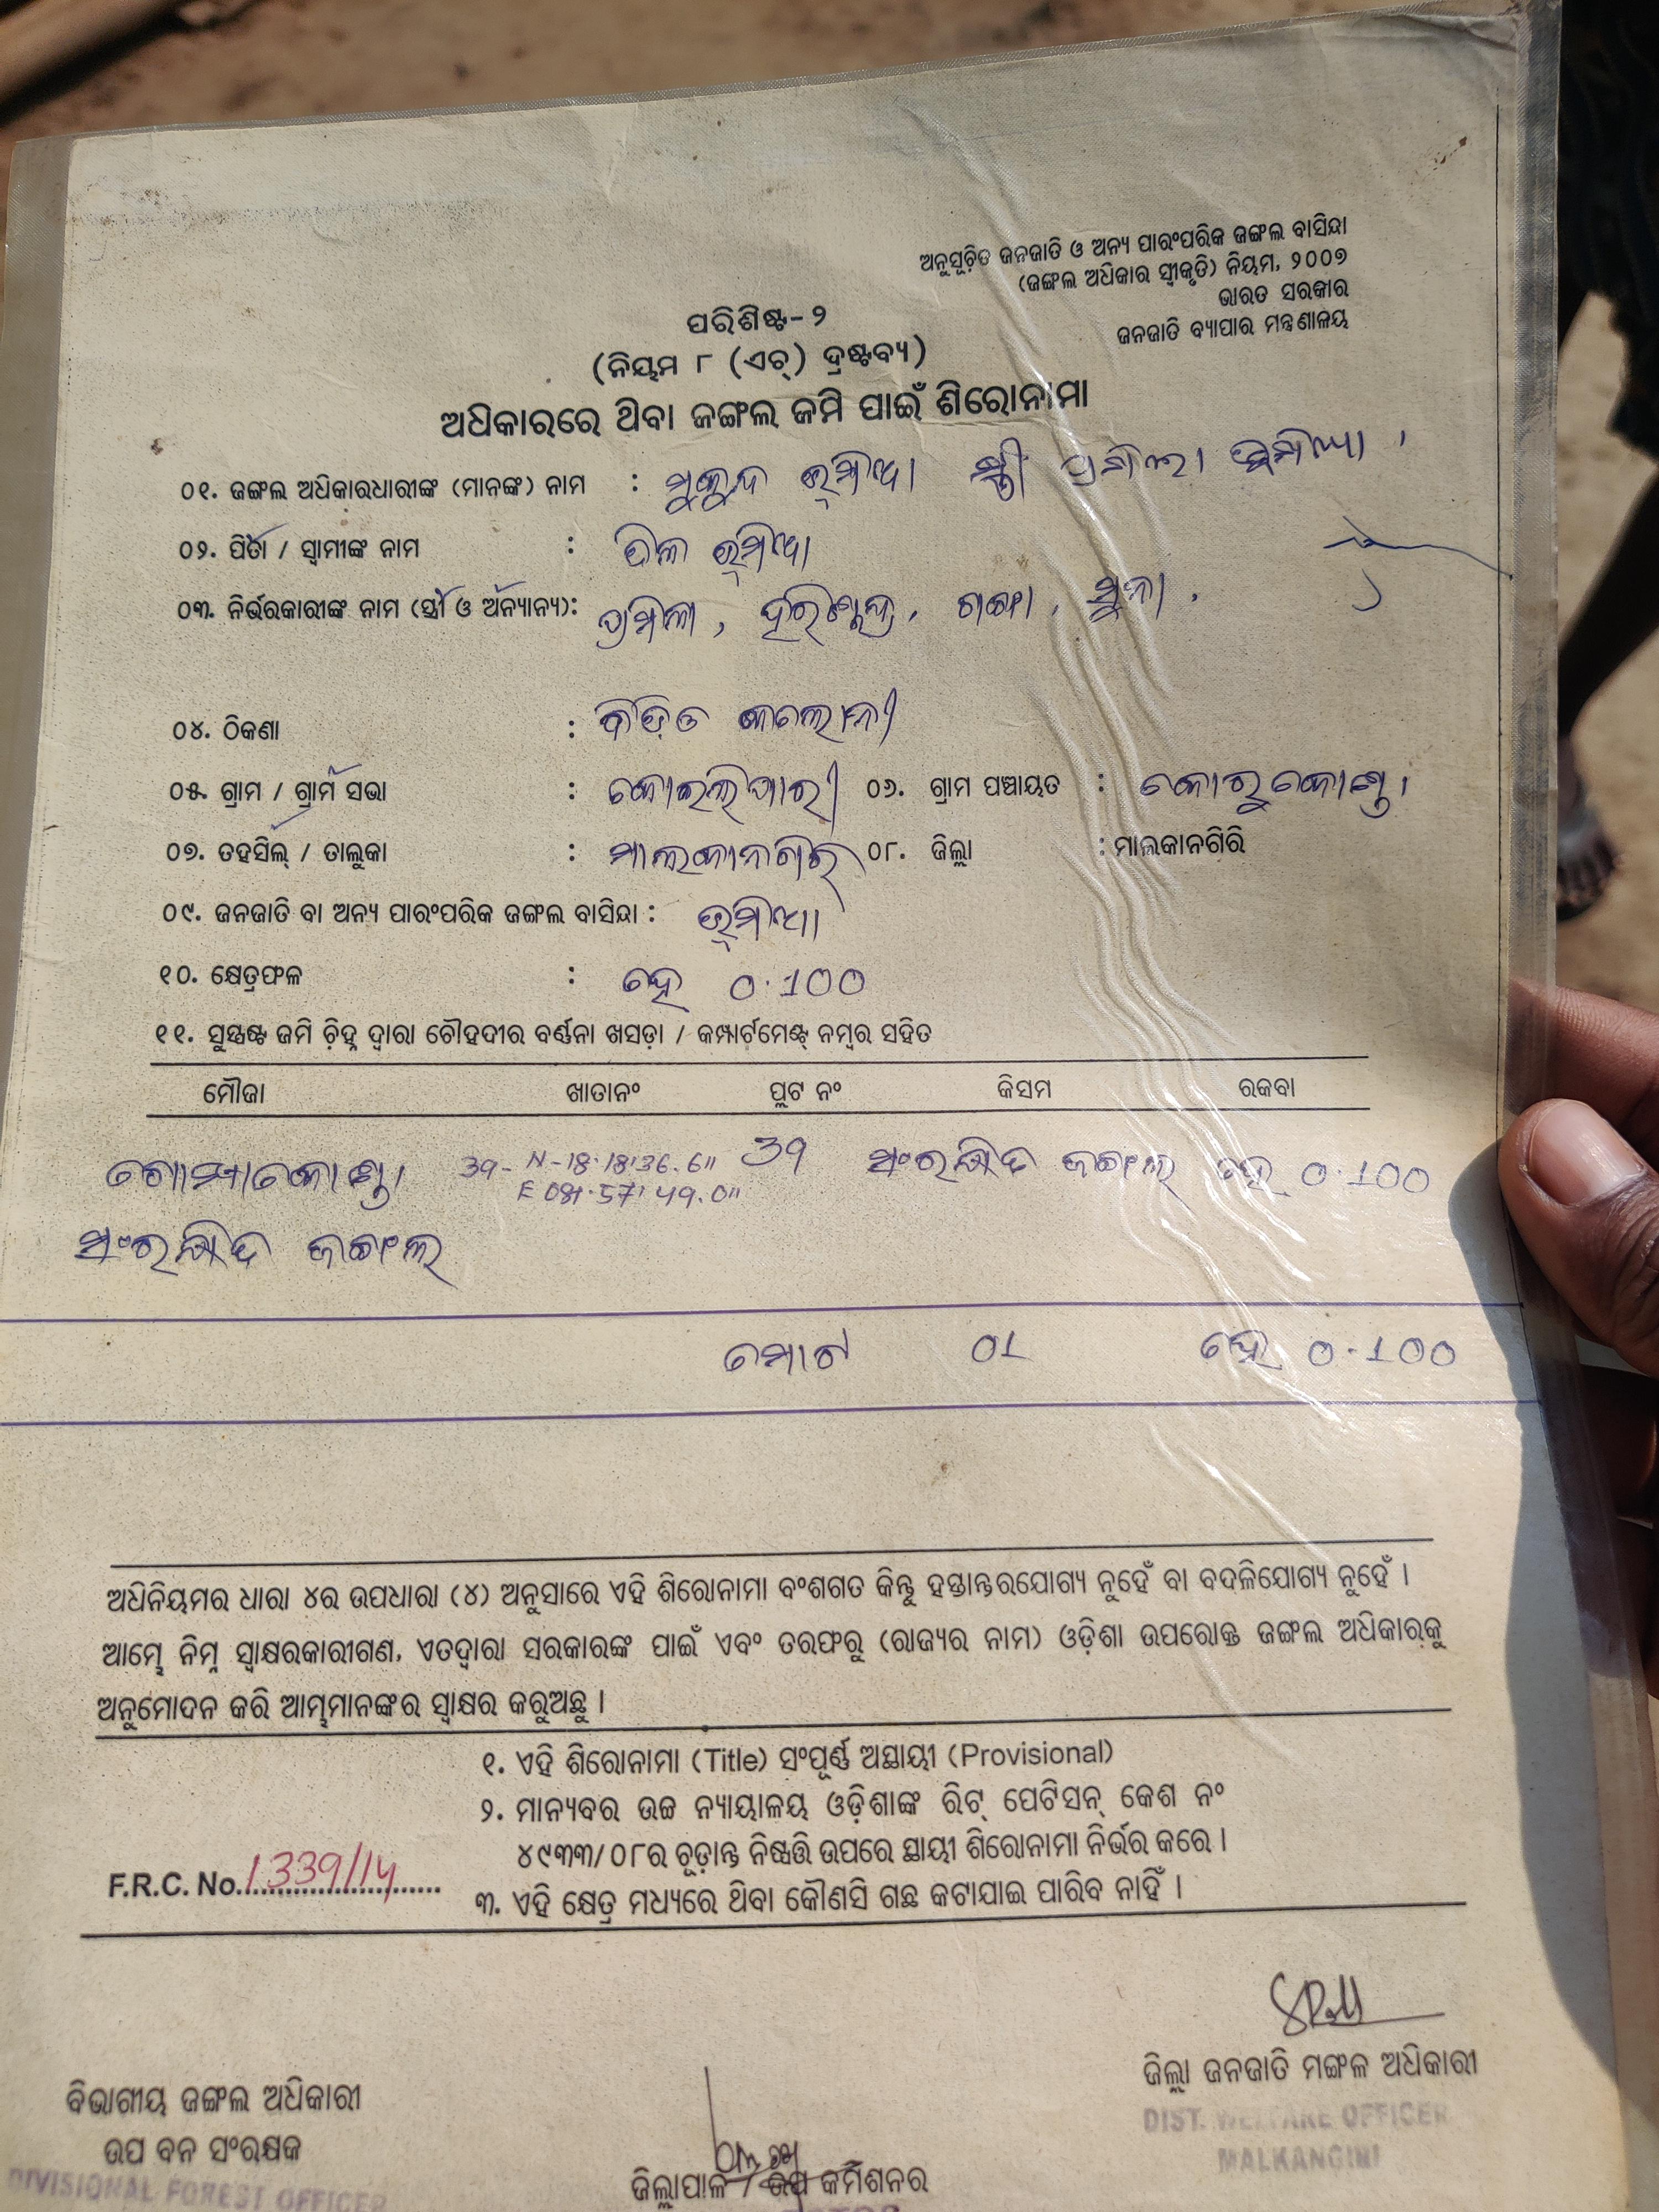 ଅନୁସୂଚିତ ଜନଜାତି ଓ ଅନ୍ୟ ପାରଂପରିକ ଜଙ୍ଗଲ ବାସିନ୍ଦା
(ଜଙ୍ଗଲ ଅଧିକାର ସ୍ୱୀକୃତି) ନିୟମ, ୨୦୦୭
ଭାରତ ସରକାର
ଜନଜାତି ବ୍ୟାପାର ମନ୍ତ୍ରଣାଳୟ
ପରିଶିଷ୍ଟ-୨
(ନିୟମ ୮ (ଏଚ୍) ଦ୍ରଷ୍ଟବ୍ୟ)
ଅଧିକାରରେ ଥିବା ଜଙ୍ଗଲ ଜମି ପାଇଁ ଶିରୋନାମା
୦୧. ଜଙ୍ଗଲ ଅଧିକାରଧାରୀଙ୍କ (ମାନଙ୍କ) ନାମ : ମୁକୁନ୍ଦ ଭୂମିଆ ସ୍ତ୍ରୀ ପ୍ରମିଳା ଭୂମିଆ
୦୨. ପିତା / ସ୍ୱାମୀଙ୍କ ନାମ : ଭୂମିଆ
୦୩. ନିର୍ଭରକାରୀଙ୍କ ନାମ (ସ୍ତ୍ରୀ ଓ ଅନ୍ୟାନ୍ୟ): ପ୍ରମିଳା, ହରିଶ୍ଚନ୍ଦ୍ର, ଗଙ୍ଗା, ସୁନା
୦୪. ଠିକଣା : କଲୋନୀ
୦୫. ଗ୍ରାମ / ଗ୍ରାମ ସଭା : ୦୬. ଗ୍ରାମ ପଞ୍ଚାୟତ : କୋରୁକୋଣ୍ଡା
୦୭. ତହସିଲ୍ / ତାଲୁକା : ମାଲକାନଗିରି ୦୮. ଜିଲ୍ଲା : ମାଲକାନଗିରି
୦୯. ଜନଜାତି ବା ଅନ୍ୟ ପାରଂପରିକ ଜଙ୍ଗଲ ବାସିନ୍ଦା : ଭୂମିଆ
୧୦. କ୍ଷେତ୍ରଫଳ : ହେ 0.100
୧୧. ସୁସ୍ପଷ୍ଟ ଜମି ଚିହ୍ନ ଦ୍ୱାରା ଚୌହଦୀର ବର୍ଣ୍ଣନା ଖସଡ଼ା / କମ୍ପାର୍ଟମେଣ୍ଟ୍ ନମ୍ବର ସହିତ
ମୌଜା ଖାତାନଂ ପ୍ଲଟ ନଂ କିସମ ରକବା
ଗୋମ୍ପାକୋଣ୍ଡା 39- N-18.18'36.6" 39 ସଂରକ୍ଷିତ ଜଙ୍ଗଲ ହେ 0.100
E 081.57'49.0"
ସଂରକ୍ଷିତ ଜଙ୍ଗଲ
ମୋଟ 01 ହେ 0.100
ଅଧିନିୟମର ଧାରା ୪ର ଉପଧାରା (୪) ଅନୁସାରେ ଏହି ଶିରୋନାମା ବଂଶଗତ କିନ୍ତୁ ହସ୍ତାନ୍ତରଯୋଗ୍ୟ ନୁହେଁ ବା ବଦଳିଯୋଗ୍ୟ ନୁହେଁ ।
ଆମ୍ଭେ ନିମ୍ନ ସ୍ୱାକ୍ଷରକାରୀଗଣ, ଏତଦ୍ୱାରା ସରକାରଙ୍କ ପାଇଁ ଏବଂ ତରଫରୁ (ରାଜ୍ୟର ନାମ) ଓଡ଼ିଶା ଉପରୋକ୍ତ ଜଙ୍ଗଲ ଅଧିକାରକୁ
ଅନୁମୋଦନ କରି ଆମ୍ଭମାନଙ୍କର ସ୍ୱାକ୍ଷର କରୁଅଛୁ ।
୧. ଏହି ଶିରୋନାମା (Title) ସଂପୂର୍ଣ୍ଣ ଅସ୍ଥାୟୀ (Provisional)
୨. ମାନ୍ୟବର ଉଚ୍ଚ ନ୍ୟାୟାଳୟ ଓଡ଼ିଶାଙ୍କ ରିଟ୍ ପେଟିସନ୍ କେଶ ନଂ
୪୯୩୩/୦୮ର ଚୂଡ଼ାନ୍ତ ନିଷ୍ପତ୍ତି ଉପରେ ସ୍ଥାୟୀ ଶିରୋନାମା ନିର୍ଭର କରେ ।
F.R.C. No. 1339/14
୩. ଏହି କ୍ଷେତ୍ର ମଧ୍ୟରେ ଥିବା କୌଣସି ଗଛ କଟାଯାଇ ପାରିବ ନାହିଁ ।
ଜିଲ୍ଲା ଜନଜାତି ମଙ୍ଗଳ ଅଧିକାରୀ
DIST. WELFARE OFFICER
MALKANGIRI
ବିଭାଗୀୟ ଜଙ୍ଗଲ ଅଧିକାରୀ
ଉପ ବନ ସଂରକ୍ଷକ
DIVISIONAL FOREST OFFICER
ଜିଲ୍ଲାପାଳ / ଉପ କମିଶନର